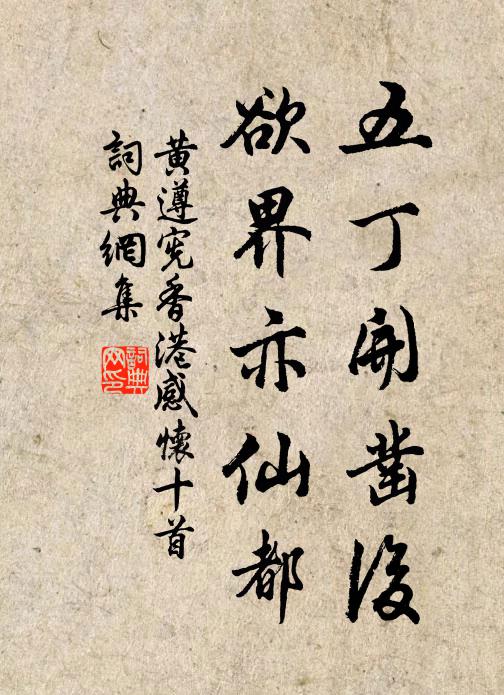 五丁開鑿後
欲界亦仙都
黃遵憲香港感懷十首
詞典網集
詞典网印